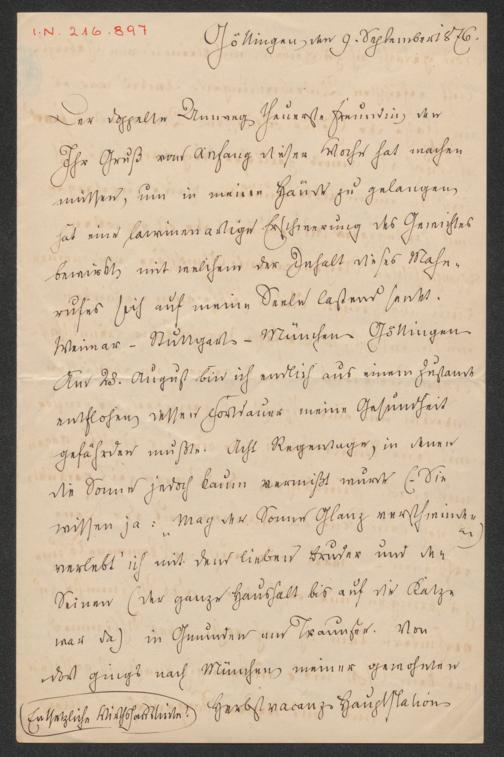 I.N. 216.897
Göttingen, den 9. September 1876.
Der doppelte Umweg, theuerste Freundin, den
Ihr Gruß vom Anfang dieser Woche hat machen
müssen, um in meine Hände zu gelangen,
hat eine lawinenartige Erschwerung des Gewichtes
bewirkt, mit welchem der Inhalt dieses Mahn-
rufes sich auf meine Seele lastend senkt.
Weimar - Stuttgart - München Göttingen
Am 28. August bin ich endlich aus einem Zustande
entflohen, dessen Fortdauer meine Gesundheit
gefährden mußte. Acht Regentage, in denen
die Sonne jedoch kaum vermißt wurde (: Sie
wissen ja: "Mag der Sonne Glanz verschwinden")
verlebt' ich mit dem lieben Bruder und den
Seinen (der ganze Haushalt bis auf die Katze
war da) in Gmunden am Traunsee. Von
dort gings nach München, meiner gewohnten
Herbstvacanz Hauptstation
(Entsetzliche Tinte!)